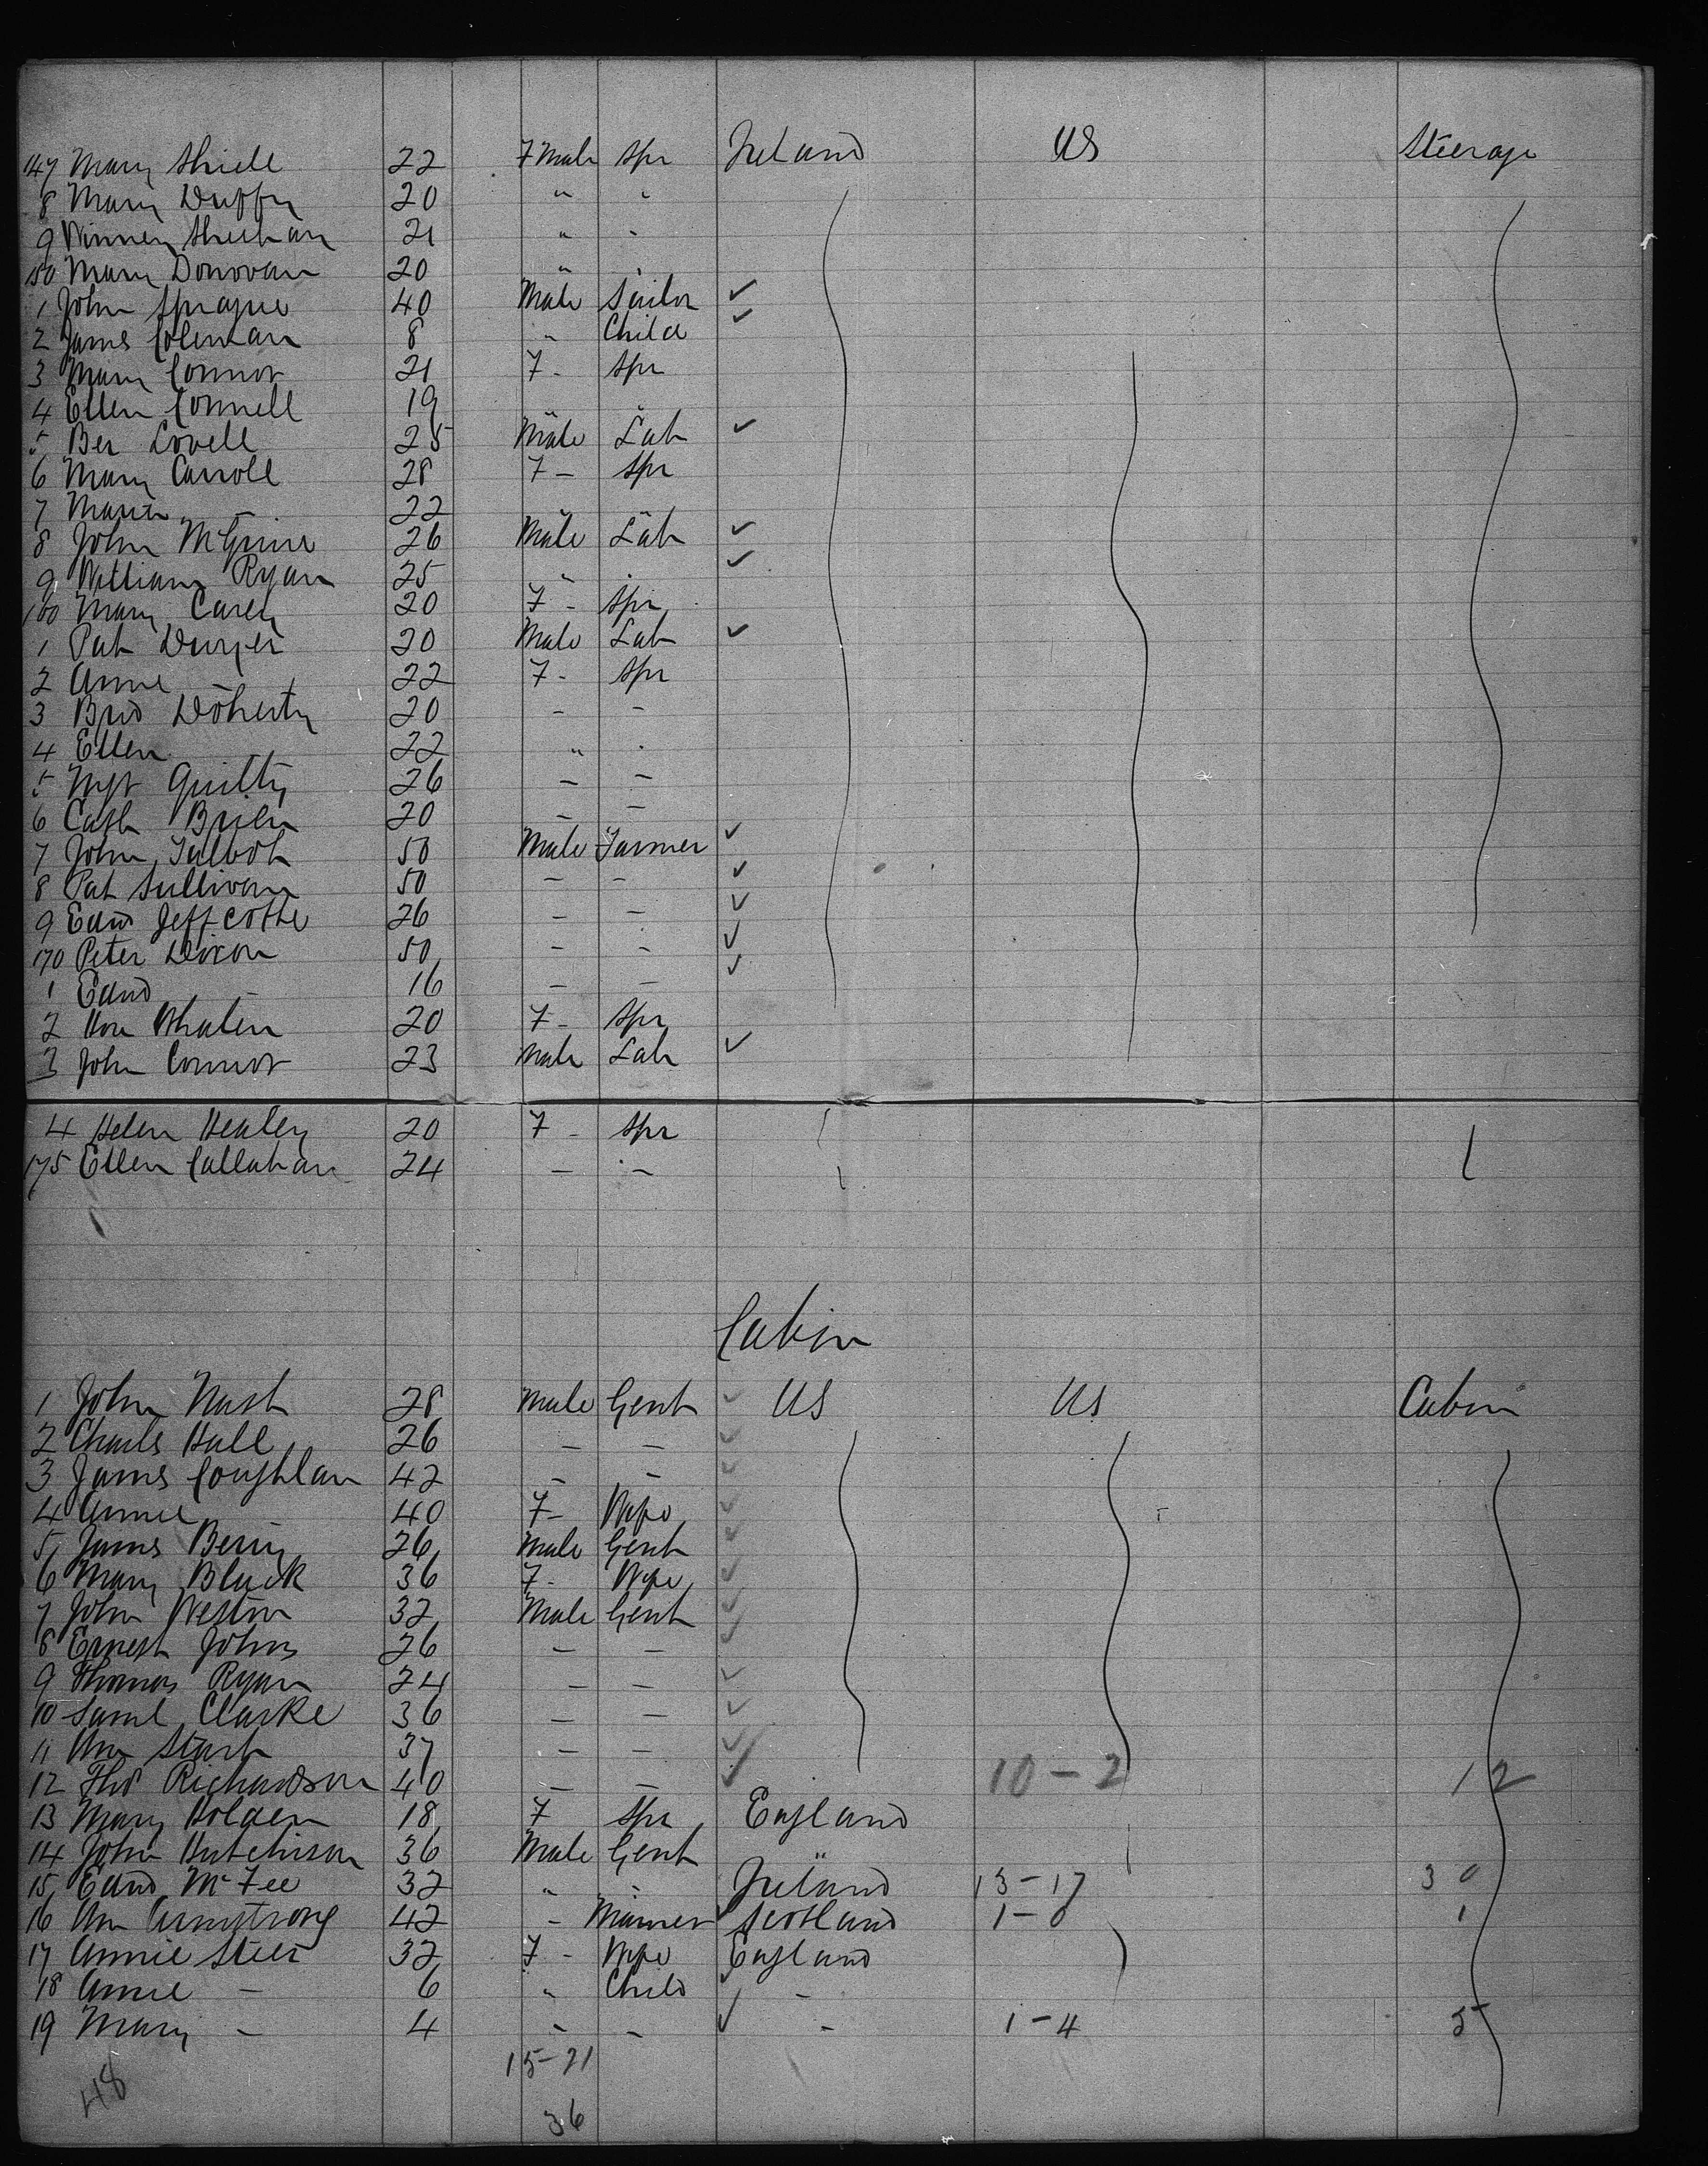 147 Mary Shiell 22 Female Spr Ireland US Steerage
8 Mary Duffy 20 " "
9 Winney Sheehan 21 " "
150 Mary Donovan 20 " "
1 John Sprague 40 Male Sailor ✓
2 James Coleman 8 " Child ✓
3 Mary Connor 21 F - Spr
4 Ellen Connell 19 " "
5 Ber Lovell 25 Male Lab ✓
6 Mary Carroll 28 F - Spr
7 Maria - 22 " "
8 John McGuire 26 Male Lab ✓
9 William Ryan 25 " " ✓
160 Mary Carey 20 F - Spr
1 Pat Dwyer 20 Male Lab ✓
2 Anne - 22 F - Spr
3 Brid Doherty 20 - -
4 Ellen 22 " "
5 Mgt Guilty 26 - -
6 Cath Brien 20 - -
7 John Talbot 50 Male Farmer ✓
8 Pat Sullivan 50 - - ✓
9 Edwd Jeffcotte 26 - - ✓
170 Peter Dixon 50 - - ✓
1 Edwd - 16 - - ✓
2 Hon Whalen 20 F - Spr
3 John Connor 23 Male Lab ✓
4 Helen Healey 20 F - Spr
175 Ellen Callahan 24 - -
Cabin
1 John Nash 28 Male Gent ✓ US US Cabin
2 Charles Hall 26 - - ✓
3 James Coughlan 42 - - ✓
4 Annie 40 F - Wife ✓
5 James Berry 26 Male Gent ✓
6 Mary Black 36 F - Wife ✓
7 John Weston 32 Male Gent ✓
8 Ernest Johns 26 - - ✓
9 Thomas Ryan 24 - - ✓
10 Saml Clarke 36 - - ✓
11 Wm Stark 37 - - ✓
12 Thos Richardson 40 - - ✓ 10 - 2 12
13 Mary Holden 18 F Spr England
14 John Hutchison 36 Male Gent "
15 Edwd McFee 32 " " Ireland 13 - 17 30
16 Wm Armstrong 42 - Mariner Scotland 1 - 0 1
17 Annie Steer 32 F - Wife England
18 Annie - 6 " Child ✓ -
19 Mary - 4 - - ✓ - 1 - 4 5
15 - 21
48
36